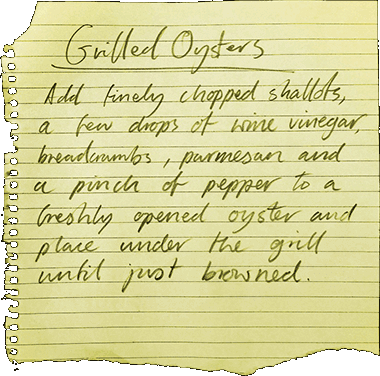 Grilled Oysters
Add finely chopped shallots,
a few drops of wine vinegar,
breadcrumbs, parmesan and
a pinch of pepper to a
freshly opened oyster and
place under the grill
until just browned.